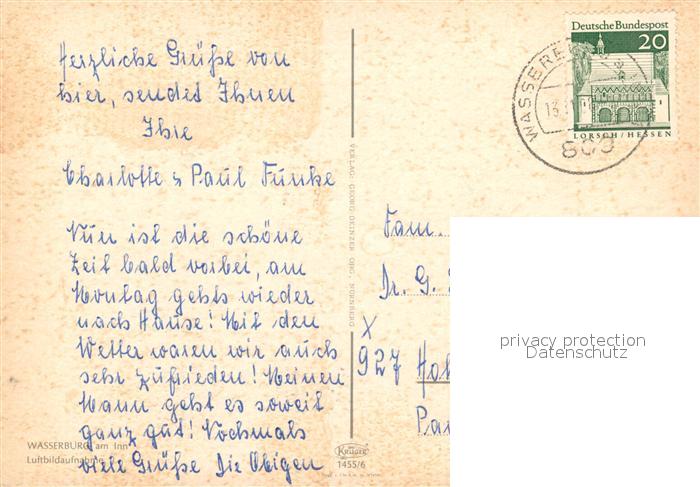 Herzliche Grüße von
hier, sendet Ihnen
Ihre
Charlotte & Paul Funke
Nun ist die schöne
Zeit bald vorbei, am
Montag gehts wieder
nach Hause! Mit den
Wetter waren wir auch
sehr zufrieden! Meinen
Mann geht es soweit
ganz gut! Nochmals
viele Grüße Die Obigen
WASSERBURG am Inn
Luftbildaufnahme
VERLAG: GEORG DEINZER OHG. NÜRNBERG
Krüger
1455/6
Deutsche Bundespost
20
LORSCH/HESSEN
WASSERBURG
13.
809
Fam.
Dr. G.
X
927
privacy protection
Datenschutz